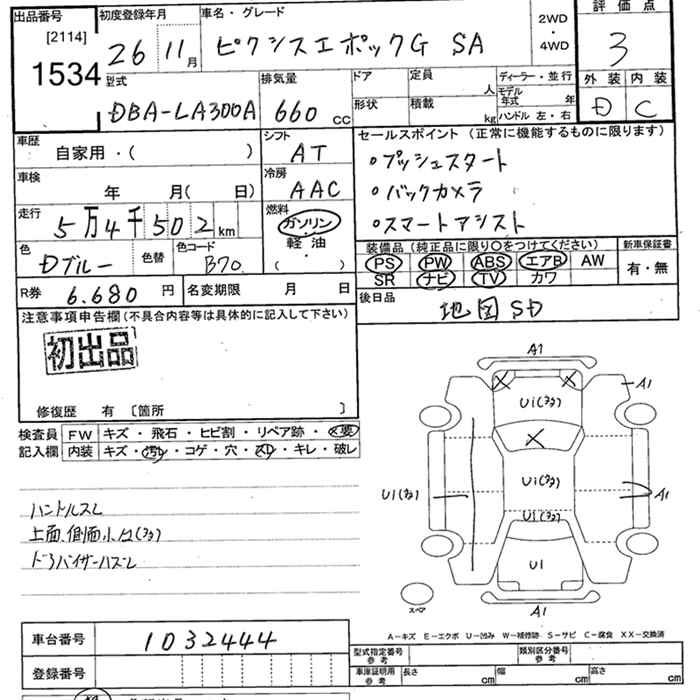 出品番号 初度登録年月 車名・グレード 2WD・4WD 評価点
[2114]
1534 26年11月 ピクシスエポックG SA 3
型式 排気量 ドア 定員 人 ディーラー・並行 外装 内装
DBA-LA300A 660 cc 形状 積載 kg モデル年式 年 ハンドル 左・右 D C
車歴 自家用・( ) シフト AT
セールスポイント (正常に機能するものに限ります)
・プッシュスタート
・バックカメラ
・スマートアシスト
車検 年 月( 日) 冷房 AAC
走行 5万4千502km 燃料 ガソリン・軽油・( )
色 Dブルー 色替 色コード B70
装備品(純正品に限り○をつけてください) 新車保証書
PS PW ABS エアB AW 有・無
SR ナビ TV カワ
R券 6.680円 名変期限 月 日
後日品 地図 SD
注意事項申告欄(不具合内容等は具体的に記入して下さい)
初出品
修復歴 有 [箇所 ]
検査員記入欄 FW キズ・飛石・ヒビ割・リペア跡・X要
内装 キズ・汚レ・コゲ・穴・スレ・キレ・破レ
ハンドルスレ
上面、側面小U(多)
ドラバイザーハズレ
A1
U1(多)
A1
U1(多)
U1(多)
A1
U1(多)
U1
A1
スペア
A-キズ E-エクボ U-凹み W-補修跡 S-サビ C-腐食 XX-交換済
車台番号 1032444
登録番号
型式指定番号 参考 類別区分番号 参考
車庫証明用 参考 長さ cm 幅 cm 高さ cm